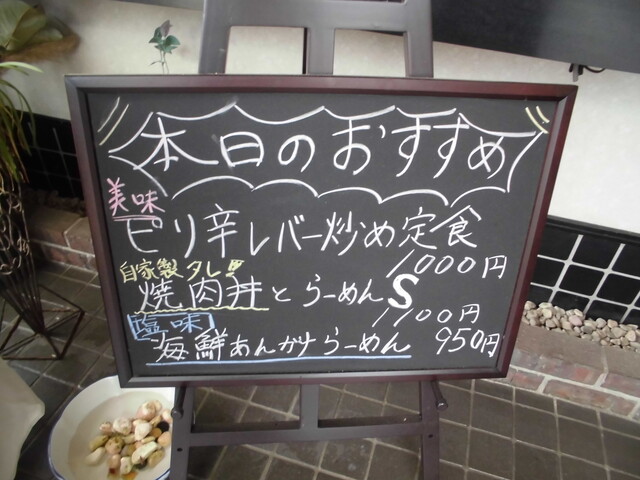 本日のおすすめ
美味
ピリ辛レバー炒め定食
1000円
自家製タレ!!
焼肉丼とらーめんS
1100円
塩味
海鮮あんかけらーめん 950円